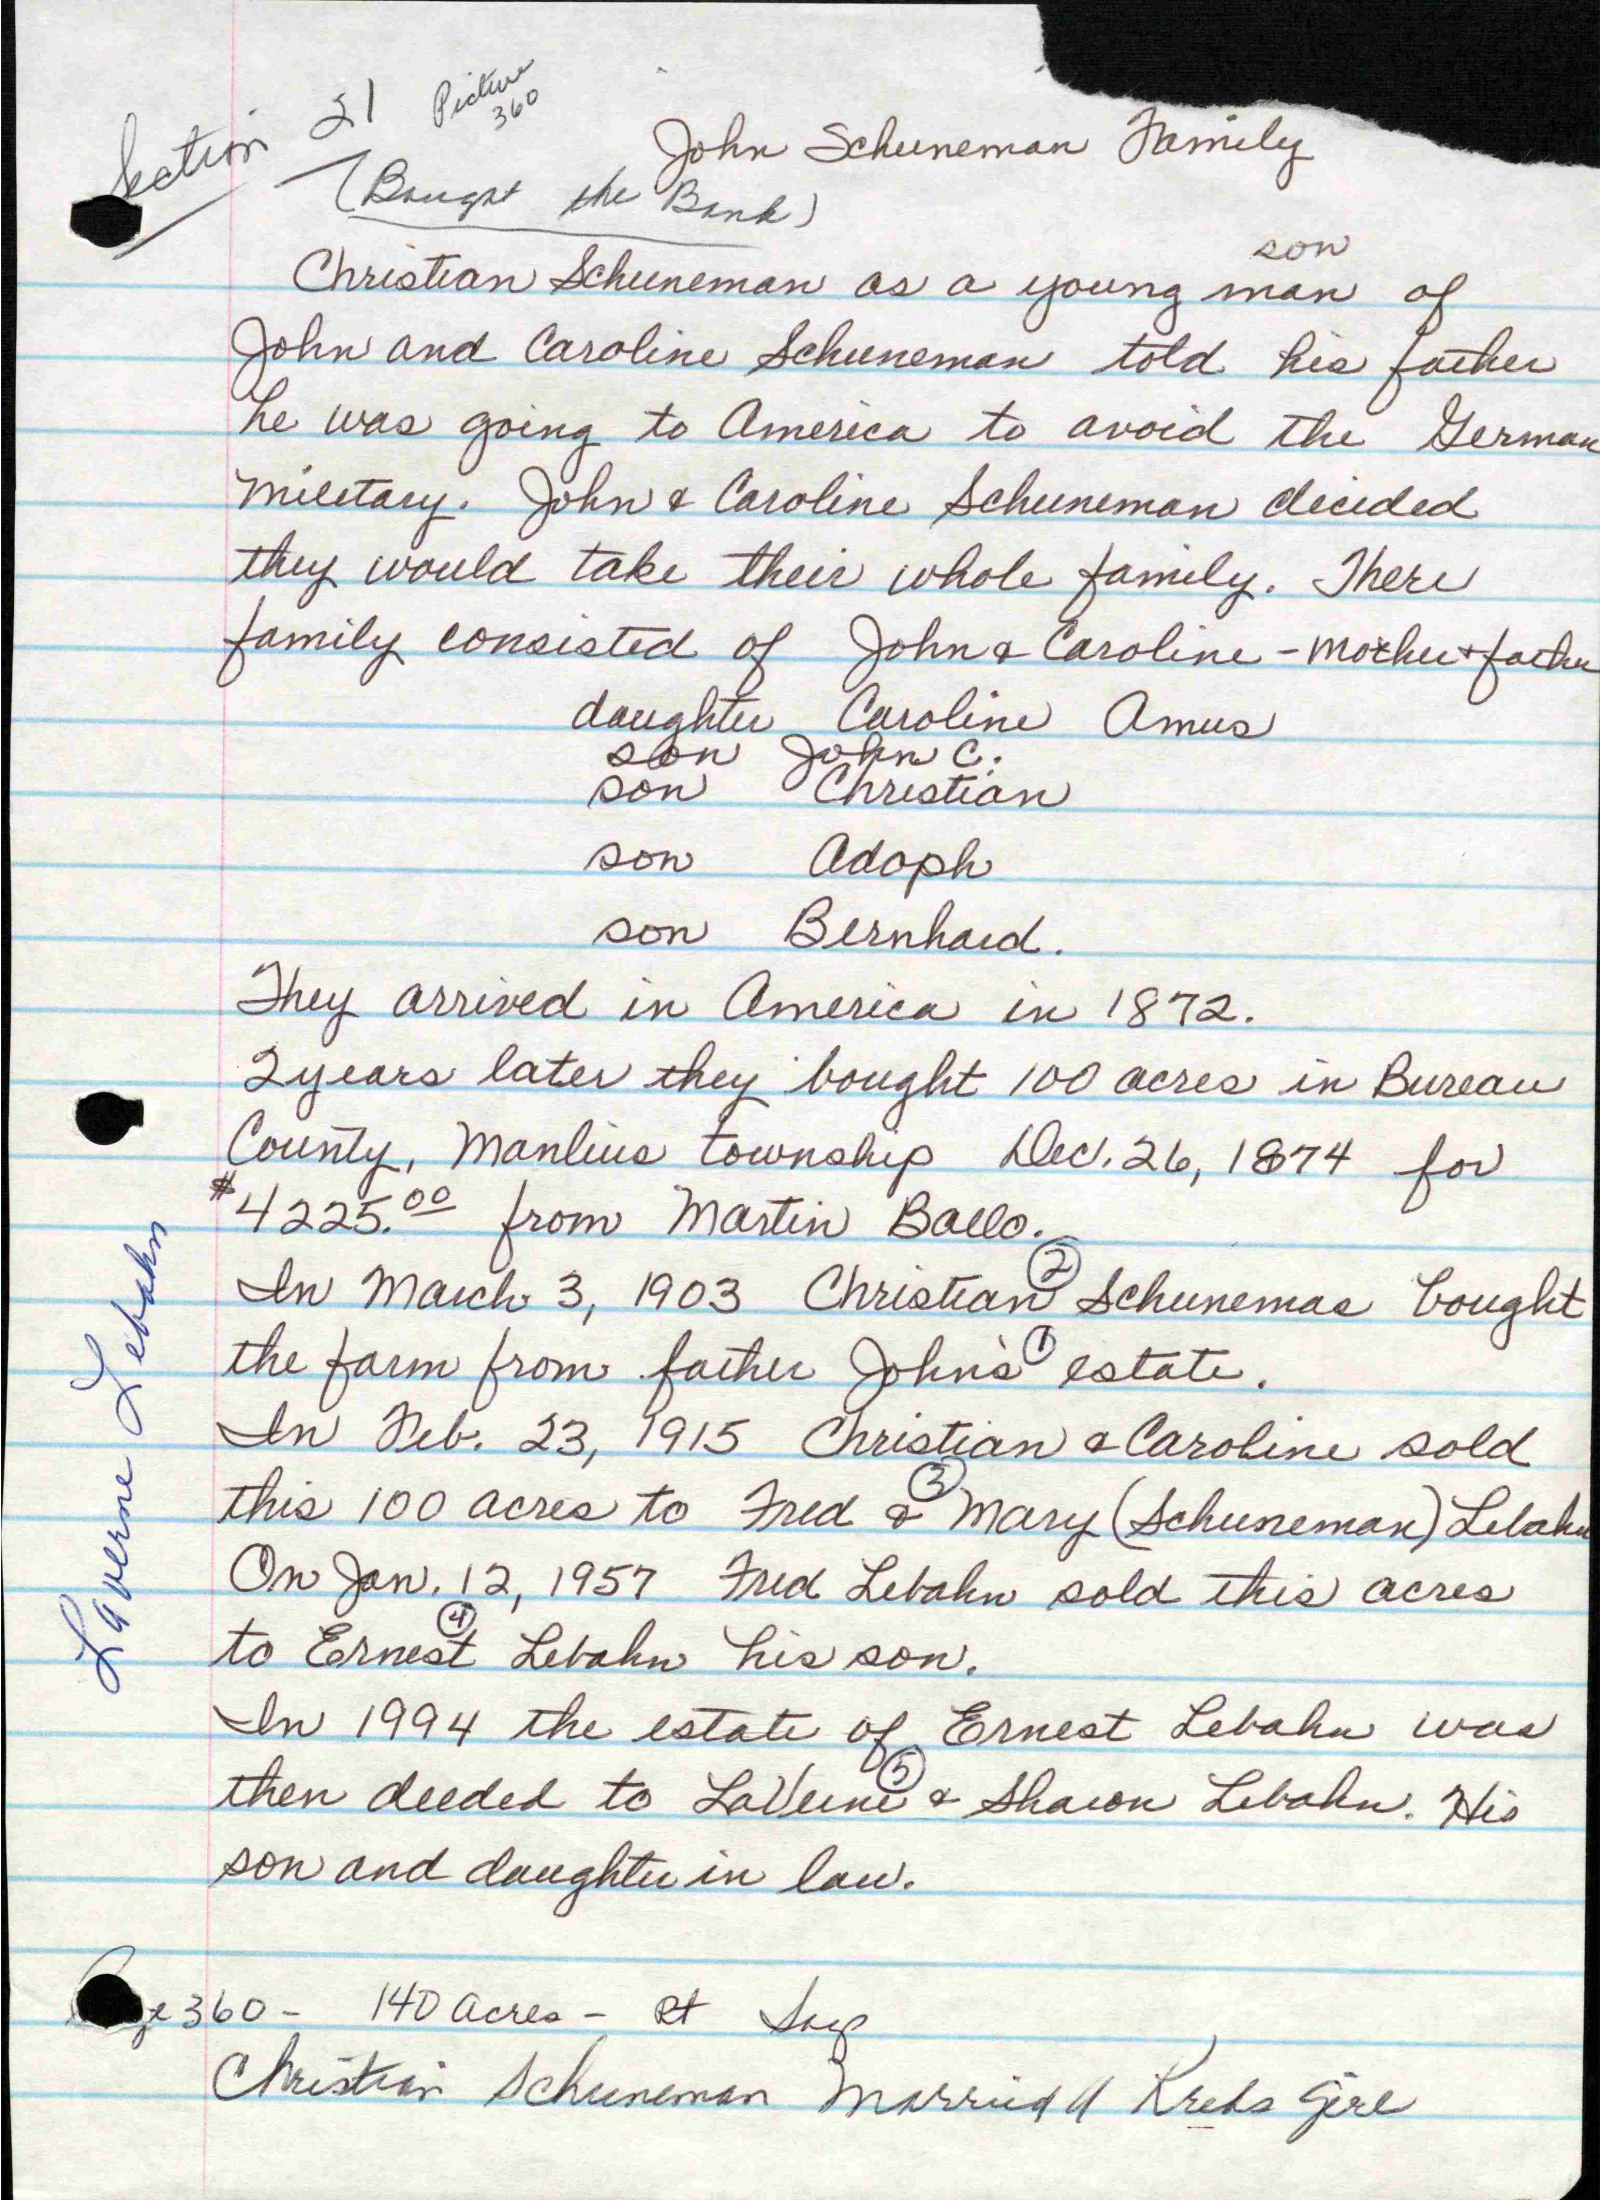 Section 21 Picture 360
John Schuneman Family
(Bought the Bank)
son
Christian Schuneman as a young man of
John and Caroline Schuneman told his father
he was going to America to avoid the German
Military. John & Caroline Schuneman decided
they would take their whole family. There
family consisted of John & Caroline - mother & father
daughter Caroline Amus
son John C.
son Christian
son Adoph
son Bernhard.
They arrived in America in 1872.
2 years later they bought 100 acres in Bureau
County, Manlius township Dec. 26, 1874 for
$4225.00 from Martin Ballo.
In March 3, 1903 Christian ② Schunemas bought
the farm from father John's ① estate.
In Feb. 23, 1915 Christian & Caroline sold
this 100 acres to Fred & ③ Mary (Schuneman) Lebahn
On Jan. 12, 1957 Fred Lebahn sold this acres
to Ernest ④ Lebahn his son.
In 1994 the estate of Ernest Lebahn was
then deeded to LaVerne ⑤ & Sharon Lebahn. His
son and daughter in law.
Laverne Lebahn
360 - 140 acres - Rt
Christian Schuneman Married a Krebs Girl